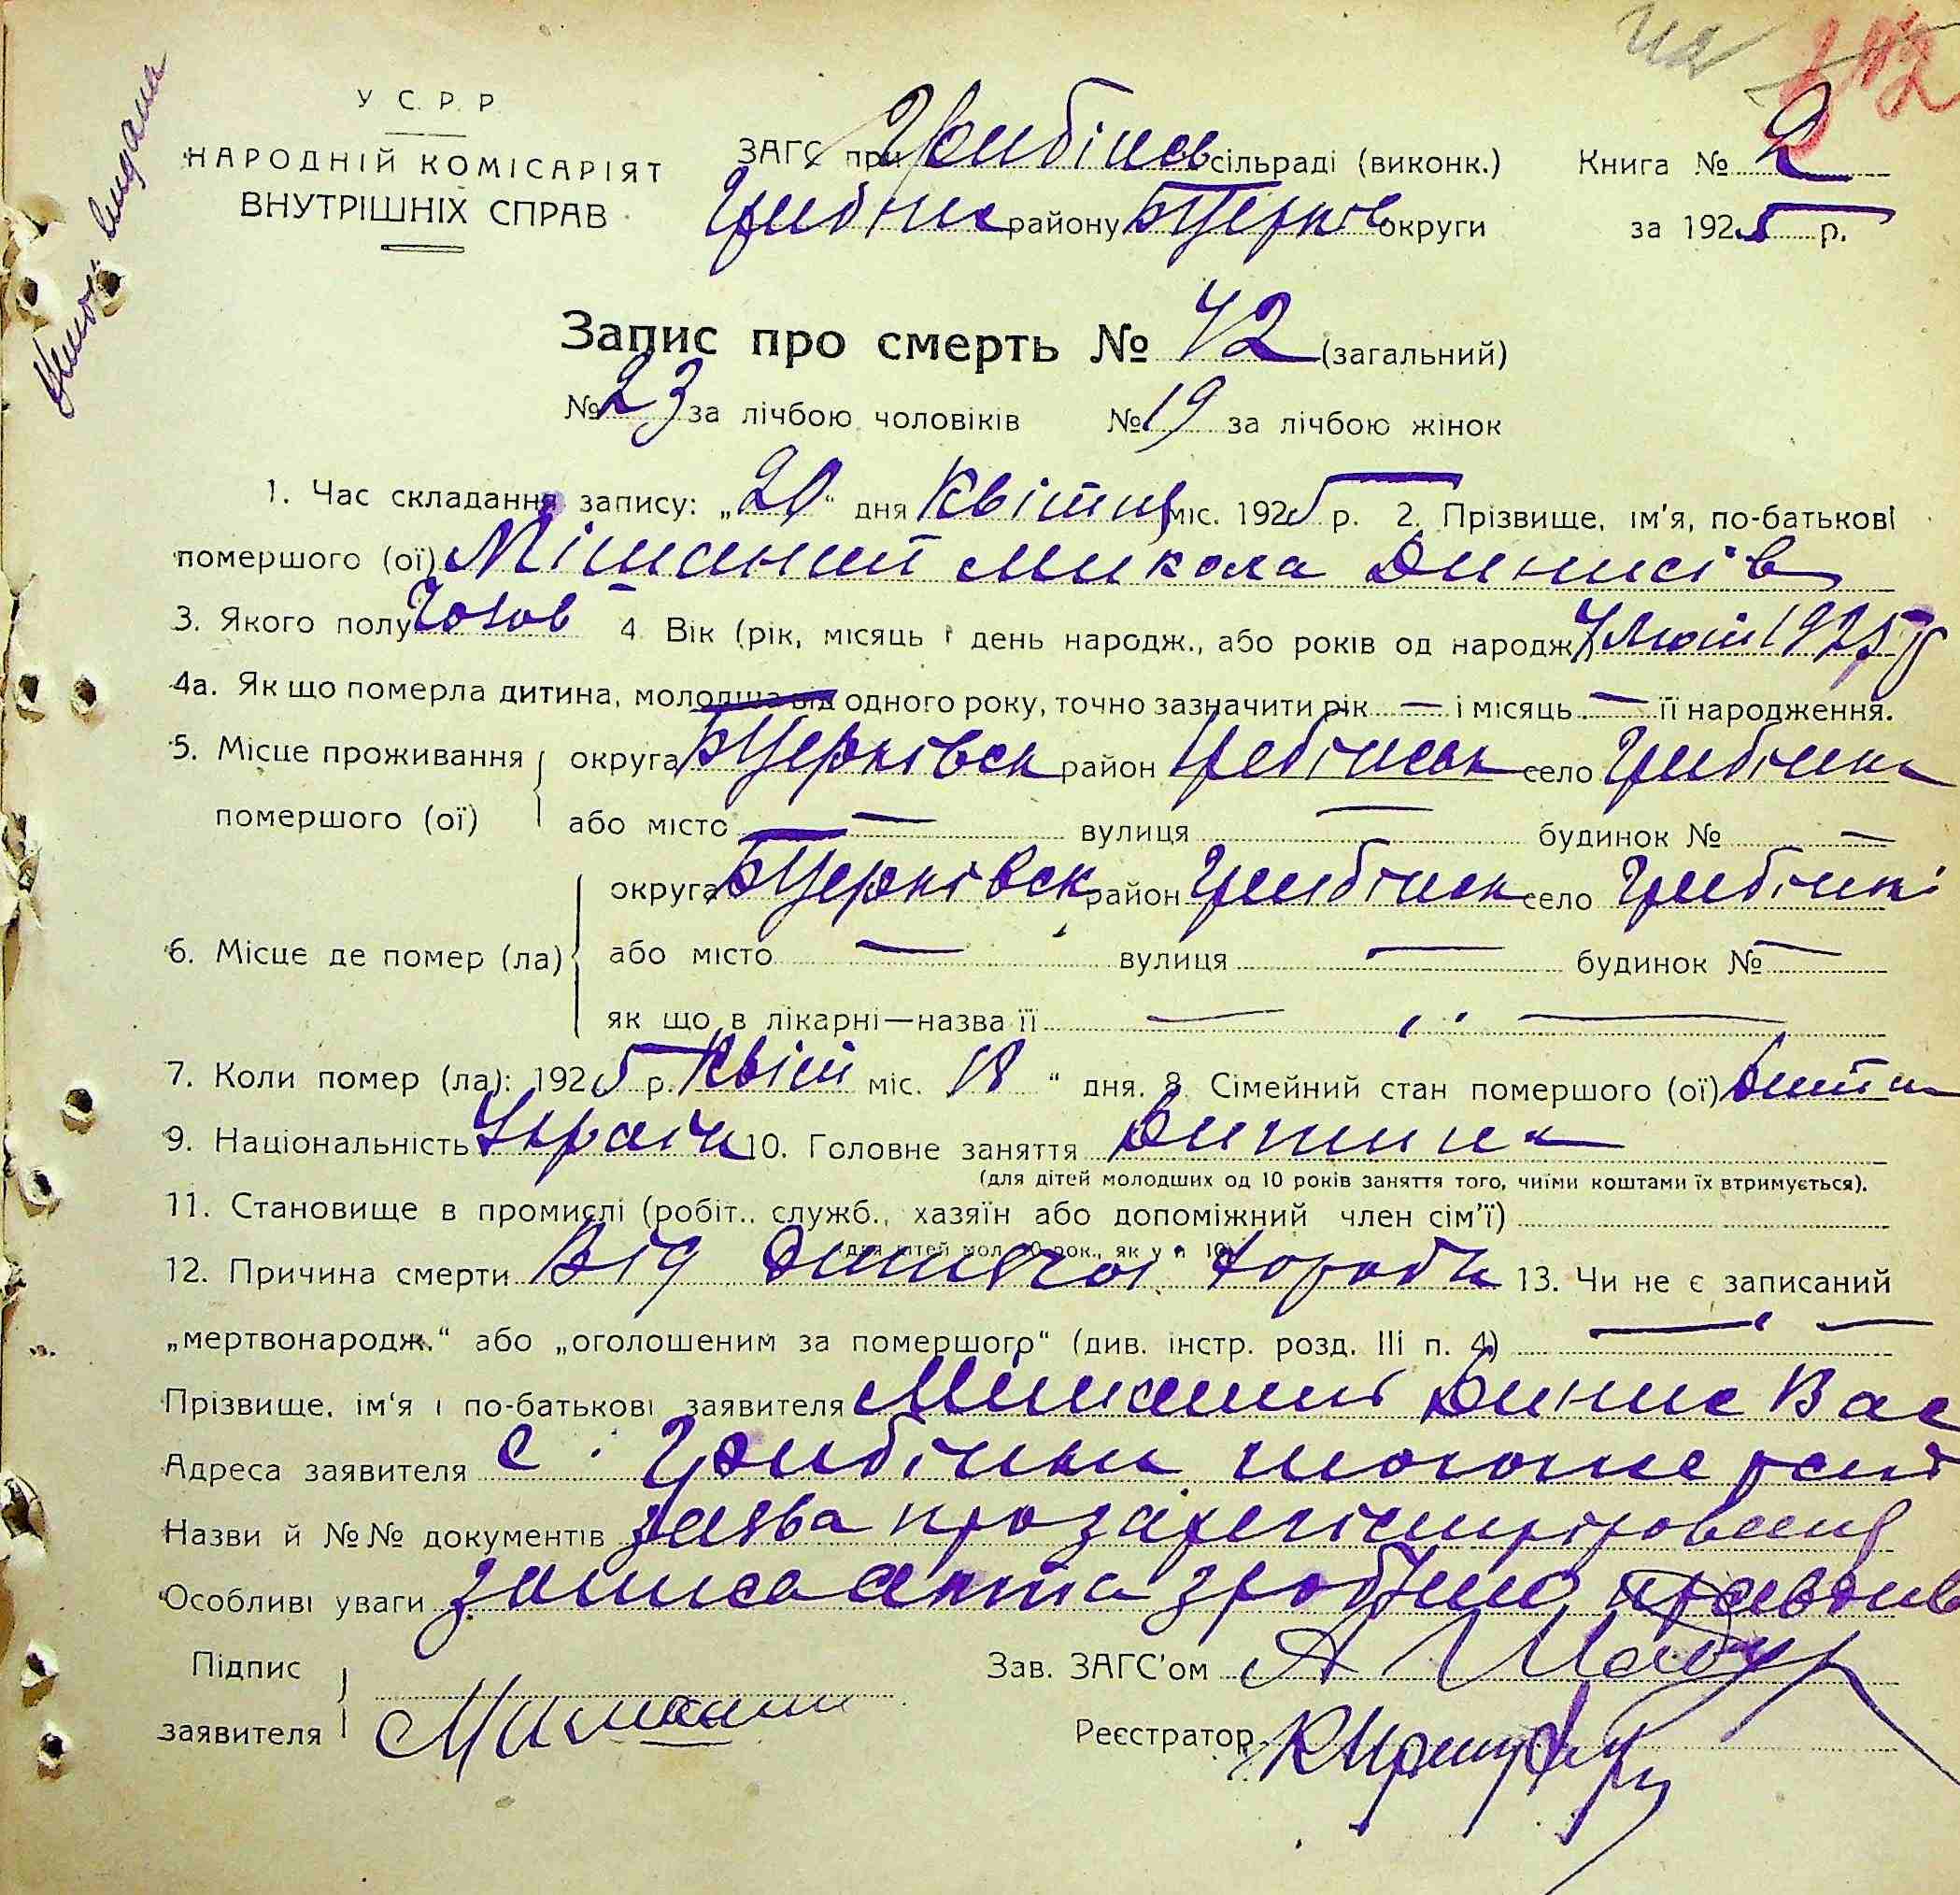 У С. Р. Р.
НАРОДНІЙ КОМІСАРІЯТ
ВНУТРІШНІХ СПРАВ
видана
ЗАГС при Гребінсь сільраді (виконк.) Книга № 2
Гребінс району БЦерків округи за 1925 р.
Запис про смерть № 42 (загальний)
№ 23 за лічбою чоловіків № 19 за лічбою жінок
1. Час складання запису: „20“ дня Квітня міс. 1925 р. 2. Прізвище, ім'я, по-батькові
помершого (ої) Мішаний Микола Динисів
3. Якого полу Чолов 4. Вік (рік, місяць і день народж., або років од народж.) Лют 1925 р
4а. Як що померла дитина, молодша від одного року, точно зазначити рік — і місяць — її народження.
5. Місце проживання округа БЦерківск район Гребінськ село Гребінки
помершого (ої) або місто — вулиця — будинок № —
округа БЦерківск район Гребінск село Гребінкі
6. Місце де помер (ла) або місто — вулиця — будинок № —
як що в лікарні—назва її — —
7. Коли помер (ла): 1925 р. Квіт міс. 18 “ дня. 8. Сімейний стан помершого (ої) Дитин
9. Національність Украін 10. Головне заняття Дитина
(для дітей молодших од 10 років заняття того, чиїми коштами їх втримується).
11. Становище в промислі (робіт., служб., хазяїн або допоміжний член сім'ї)
(для дітей мол. 10 рок., як у п. 10)
12. Причина смерти Від Дитячої хороби 13. Чи не є записаний
„мертвонародж.“ або „оголошеним за помершого“ (див. інстр. розд. III п. 4) — —
Прізвище, ім'я і по-батькові заявителя Мишаний Динис Вас
Адреса заявителя с. Гребінки того же
Назви й №№ документів заява про зарегістріровання
Особливі уваги запись акта зроблено правдив
Підпис
заявителя Мишаний
Зав. ЗАГС'ом
Реєстратор